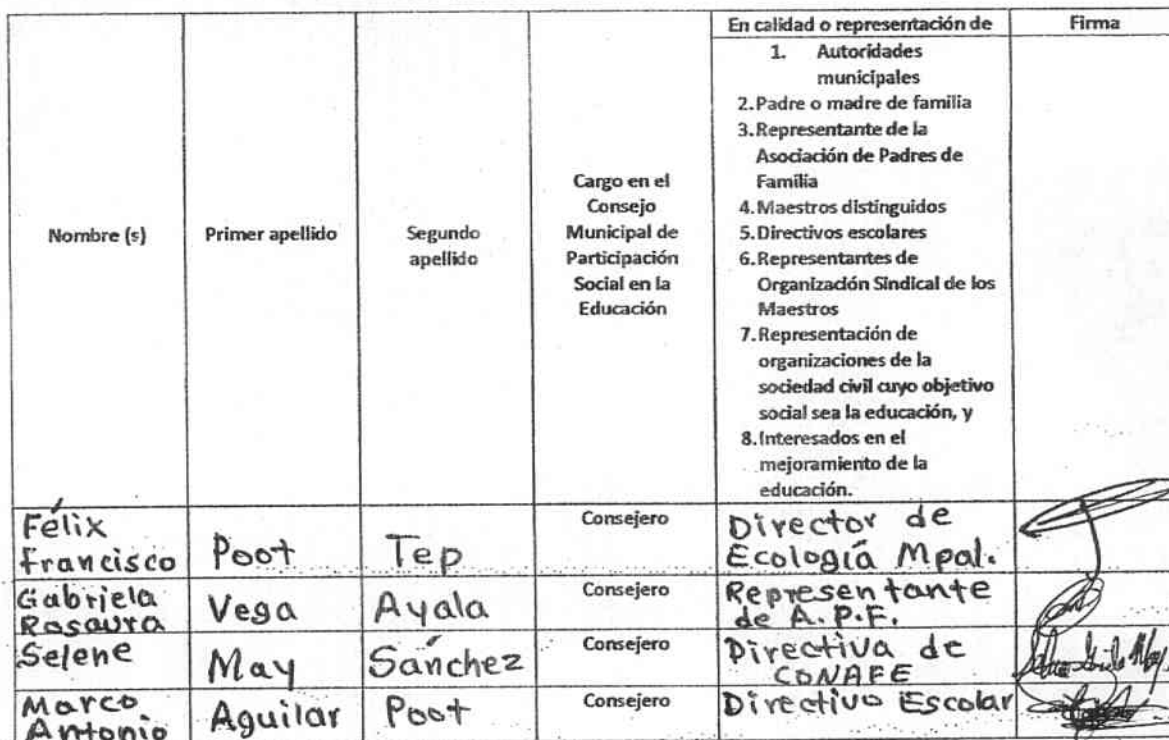 Nombre (s)
Primer apellido
Segundo
apellido
Cargo en el
Consejo
Municipal de
Participación
Social en la
Educación
En calidad o representación de
1. Autoridades
municipales
2. Padre o madre de familia
3. Representante de la
Asociación de Padres de
Familia
4. Maestros distinguidos
5. Directivos escolares
6. Representantes de
Organización Sindical de los
Maestros
7. Representación de
organizaciones de la
sociedad civil cuyo objetivo
social sea la educación, y
8. Interesados en el
mejoramiento de la
educación.
Firma
Félix
Francisco
Poot
Tep
Consejero
Director de
Ecología Mpal.
Gabriela
Rosaura
Vega
Ayala
Consejero
Representante
de A.P.F.
Selene
May
Sánchez
Consejero
Directiva de
CONAFE
Marco
Antonio
Aguilar
Poot
Consejero
Directivo Escolar